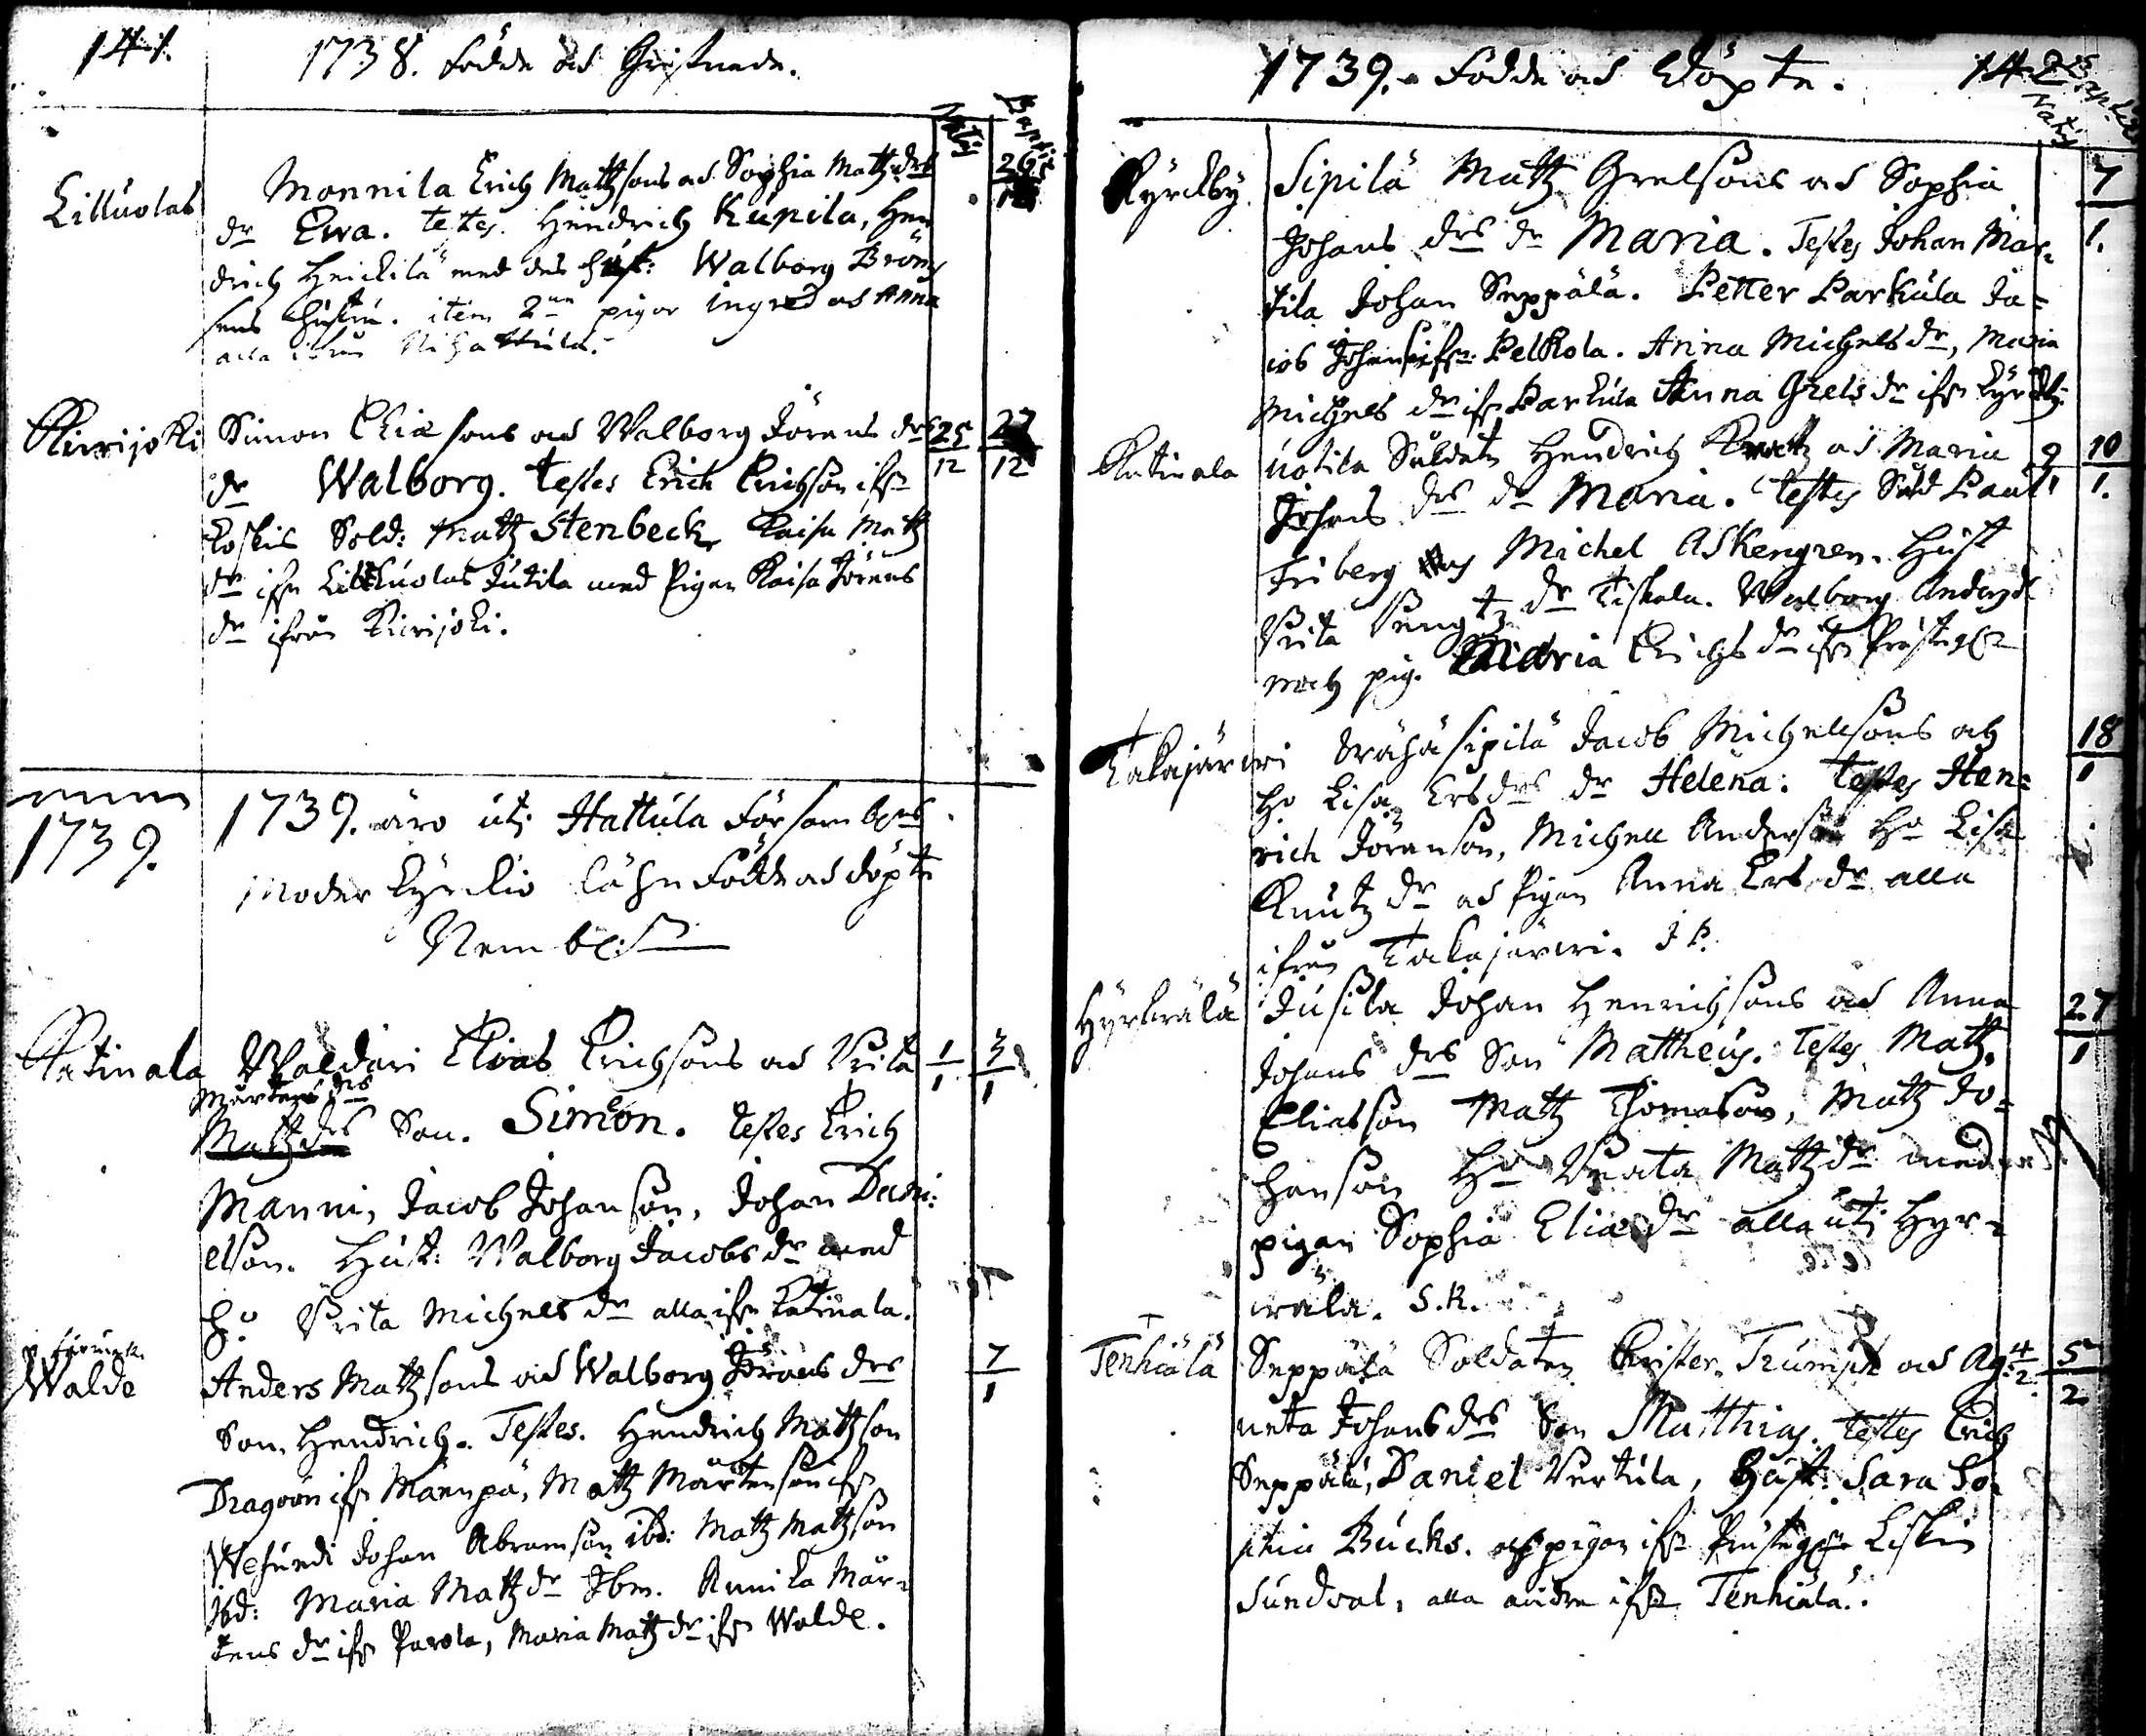 141.
1738. Födde och Christnade.
Natus Baptis
Lilluolas
Monnila Erich Mattzsons och Sophia Mattzdrs 26
dr Ewa. testes. Hindrich Kúpila, Hen
drich Heickilä med des húst: Walborg Bröm
sens hústru. item 2ne pigor Ingred och Anna
alla ifrån Nihattula.
Kirrijoki Simon Eliæ sons och Walborg Jörens drs 25/12 27/12
dr Walborg. testes Erich Erichson ifr
Koskis Sold: Mattz Stenbeck, Kaisa Mattz
dr ifr Lilluolas Jutila med Pigan Kaisa Jörens
dr ifrån Kirrijoki.
1739.
1739. äro uti Hattúla Församblns
Moder Kyrckio Sochn Födde och döpte
Nembl:
Katinala Waldari Elias Erichsons och Brita 1/1 3/1
Mårtens drs
Mattzdrs Son. Simon. testes Erich
Manni, Jacob Johanson, Johan Dani:
elson. Húst: Walborg Jacobs dr med
ho Brita Michels dr alla ifr Katinala.
Walde Anders Mattzsons och Walborg Jörans drs 7/1
Son. Hendrich. Testes. Hendrich Mattzson
Dragoun ifr Mänpä, Mattz Mårtenson ifr
Wesundi Johan Abramson ibd: Mattz Mattzson
Ibd: Maria Mattzdr Ibm. Annika Mår-
tens dr ifr Parola, Maria Mattzdr ifr Walde.
1739. Födde och Döpte. 142
Natus Baptis
Kyrckby Sipilä Mattz Grelsons och Sophia 7/1.
Johans drs dr Maria. Testes Johan Mar-
tila Johan Seppälä. Petter Parkúla Ja-
cob Johanson ifr Pelkola. Anna Michels dr, Maria
Michels dr ifr Parkúla Anna Grels dr ifr Kyrckby
Katinala Uotila Soldaten Hendrich och Maria 9/1 10/1.
Johans drs dr Maria. testes Sold Paul
Friberg och Michel Askengren. Húst
Brita Bengtz dr Tiskala. Walborg Andersdr
och pig. Maria Erichs dr ifr Prästeg
Takajärwi Wähäsipilä Jacob Michelsons och 18/1
ho Lisa Ersdrs dr Helena: testes Hen-
rich Jöranson, Michell Anderson ho Lisa
Knutz dr och Pigan Anna Ers dr alla
ifrån Takajärwi. J P.
Hyrwälä Júsila Johan Henrichsons och Anna 27/1
Johans drs Son Mattheus. Testes Mattz
Eliasson Mattz Thomason, Mattz Jo-
hanson Ho Beata Mattzdr med
pigan Sophia Eliæ dr alla uti Hyr-
wälä. S.K.
Tenhiälä Seppälä Soldaten Christer Trumpf och Ag- 4/2 5/2
neta Johans drs Son Matthias. testes Erich
Seppälä, Daniel Vertúla, Húst: Sara So-
phia Bucks. och pigan ifr Prästegår Liskin
Sundval, alla andra ifr Tenhiälä.